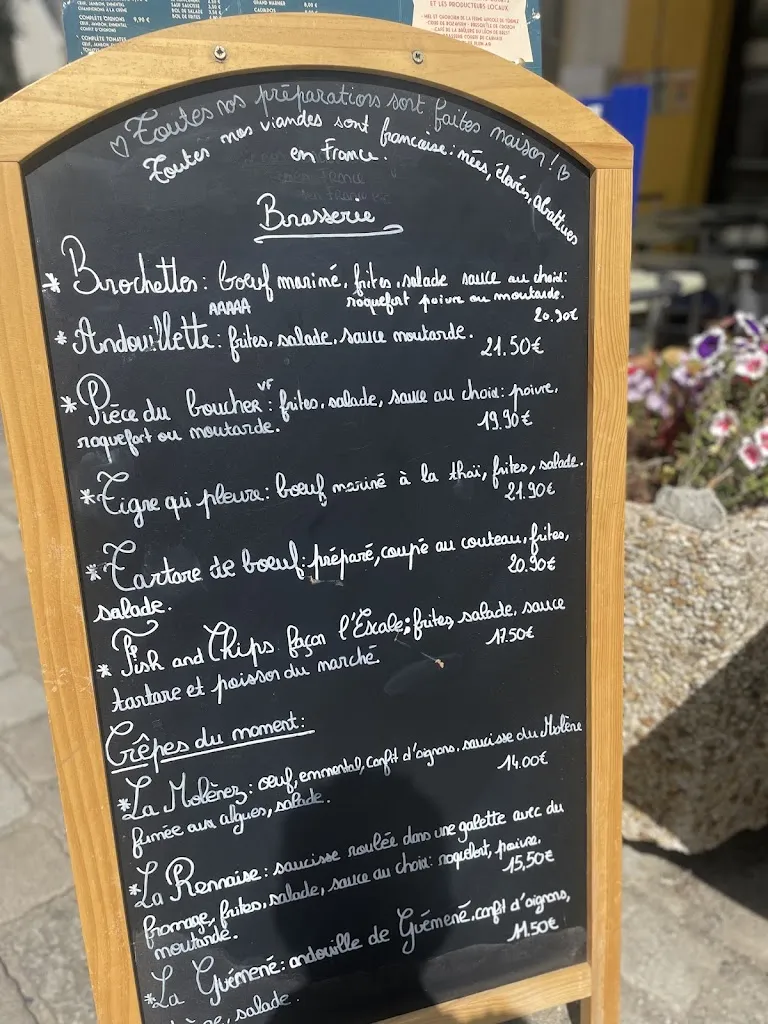 COMPLÈTE OIGNONS 9,90 €
ŒUF, JAMBON, EMMENTAL
COMPLÈTE TOMATES
ET LES PRODUCTEURS LOCAUX
♡ Toutes nos préparations sont faites maison ! ♡
Toutes nos viandes sont francaise : nées, élevées, abattues
en France.
Brasserie
* Brochettes : boeuf mariné, frites, salade sauce au choix :
roquefort poivre ou moutarde.
20.90€
AAAAA
* Andouillette : frites, salade, sauce moutarde.
21.50€
* Pièce du boucher VF : frites, salade, sauce au choix : poivre,
roquefort ou moutarde.
19.90€
* Tigre qui pleure : boeuf mariné à la thaï, frites, salade.
21.90€
* Tartare de boeuf : préparé, coupé au couteau, frites,
salade.
20.90€
* Fish and Chips façon l'Escale ; frites, salade, sauce
tartare et poisson du marché
17.50€
Crêpes du moment :
* La Molènez : œuf, emmental, confit d'oignons, saucisse du Molène
fumée aux algues, salade.
14.00€
* La Rennaise : saucisse roulée dans une galette avec du
fromage, frites, salade, sauce au choix : roquefort, poivre,
moutarde.
15,50€
* La Guémené : andouille de Guémené, confit d'oignons,
11.50€
salade.